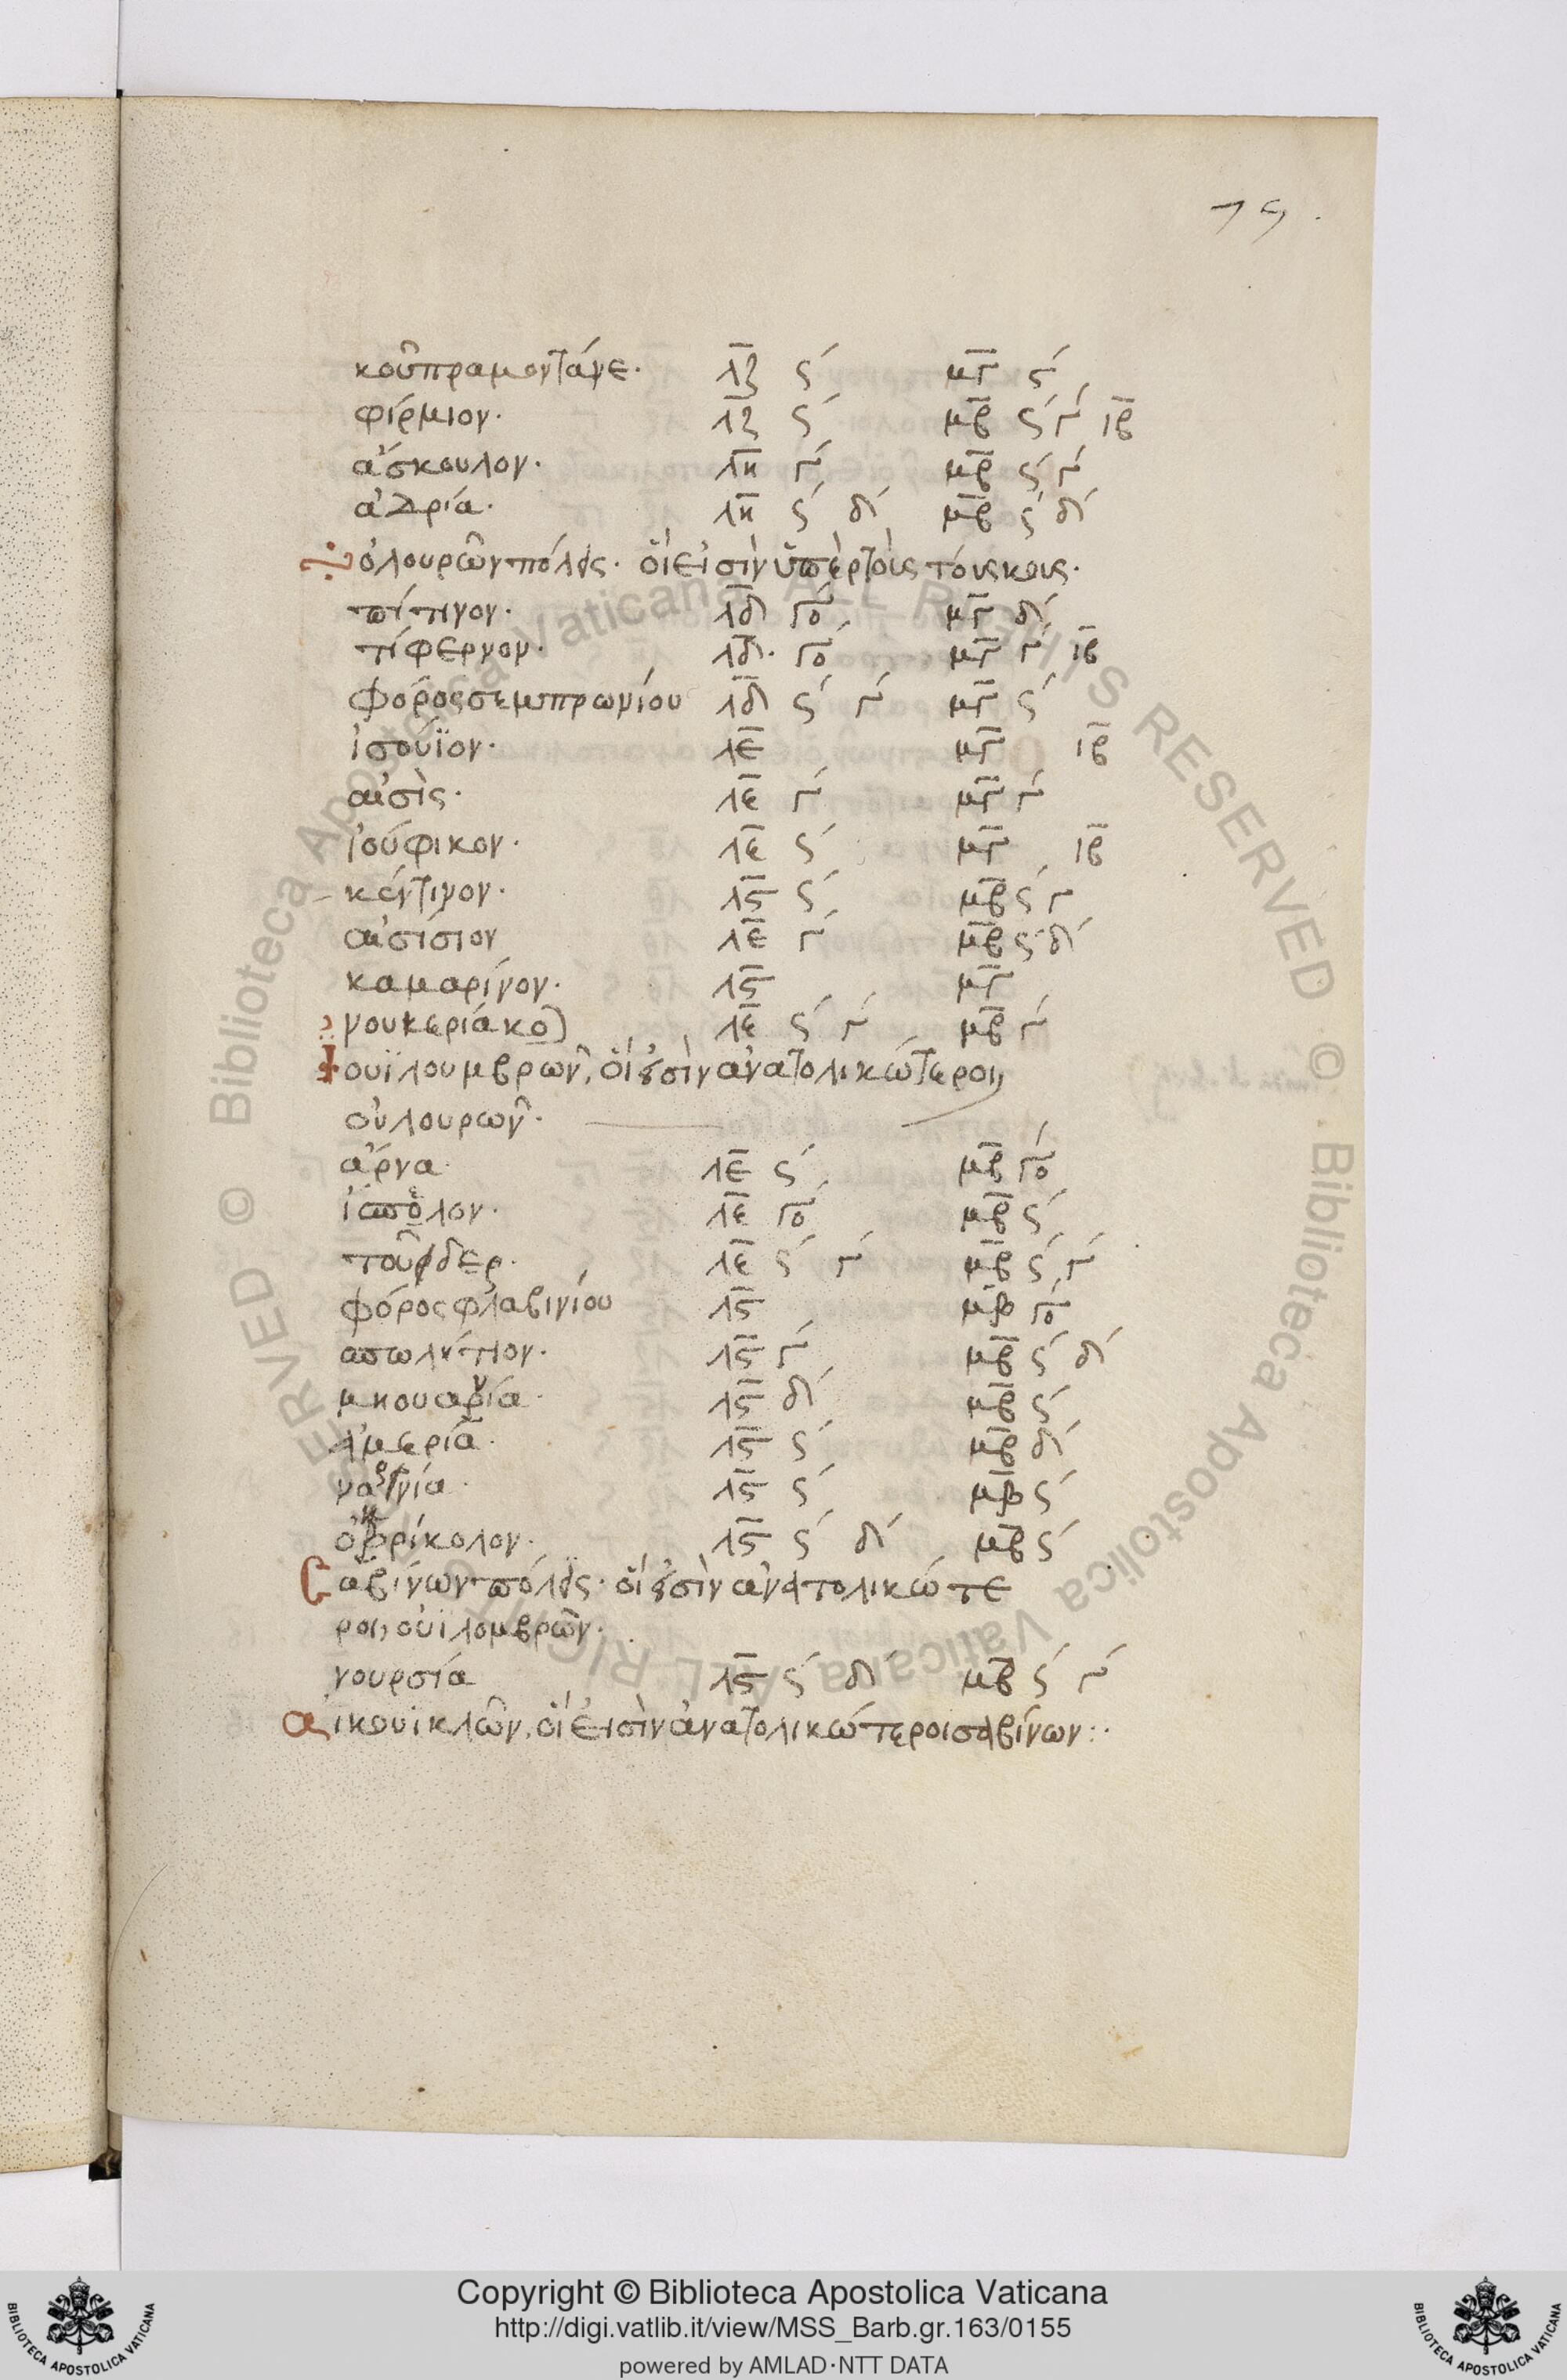 75.
κοῦπραμοντάνε. λ̅ζ̅ ς´ μ̅γ̅ ς´
φίρμιον. λ̅ζ̅ ς´ μ̅β̅ ς´ γ´ ι̅β̅
ἄσκουλον. λ̅η̅ γ´ μ̅β̅ ς´ γ´
ἀδρία. λ̅η̅ ς´ δ´ μ̅β̅ ς´ δ´
ὀλουρῶν πόλεις. οἵ εἰσὶν ὑπὲρ τοὺς τούσκους.
πίτινον. λ̅δ̅ γο´ μ̅γ̅ δ´
τίφερνον. λ̅δ̅. γο´ μ̅γ̅ γ´ ι̅β̅
φόρος σεμπρωνίου λ̅δ̅ ς´ γ´ μ̅γ̅ ς´
ἰσούϊον. λ̅ε̅ μ̅γ̅ ι̅β̅
αἰσὶς. λ̅ε̅ γ´ μ̅γ̅ γ´
ἰούφικον. λ̅ε̅ ς´ μ̅γ̅ ι̅β̅
κέντινον. λ̅ϛ̅ ς´ μ̅β̅ ς´ γ´
αἰσίσιον λ̅ε̅ γ´ μ̅β̅ ς´ δ´
καμαρίνον. λ̅ϛ̅ μ̅γ̅
νουκεριάκο) λ̅ε̅ ς´ γ´ μ̅β̅ γ´
ουϊλουμβρῶν, οἵ εἰσὶν ἀνατολικώτεροι
οὐλουρῶν.
ἄρνα. λ̅ε̅ ς´ μ̅β̅ γο´
ἰσπέλον. λ̅ε̅ γο´ μ̅β̅ ς´
τοῦδερ. λ̅ε̅ ς´ γ´ μ̅β̅ ς´ γ´
φόρος φλαβινίου λ̅ϛ̅ μ̅β̅ γο´
σπωλήτιον. λ̅ϛ̅ γ´ μ̅β̅ ς´ δ´
μηουανία. λ̅ϛ̅ δ´ μ̅β̅ ς´
ἀμερία. λ̅ϛ̅ ς´ μ̅β̅ δ´
ναρνία. λ̅ϛ̅ ς´ μ̅β̅ ς´
ὀκρίκολον. λ̅ϛ̅ ς´ δ´ μ̅β̅ ς´
Σαβίνων πόλεις. οἵ εἰσὶν ἀνατολικώτε
ροι οὐϊλομβρῶν.
νουρσία λ̅ϛ̅ ς´ δ´ μ̅β̅ ς´ γ´
αἰκουϊκλῶν, οἵ εἰσὶν ἀνατολικώτεροι σαβίνων:.
© Biblioteca Apostolica Vaticana ALL RIGHTS RESERVED
Copyright © Biblioteca Apostolica Vaticana
http://digi.vatlib.it/view/MSS_Barb.gr.163/0155
powered by AMLAD·NTT DATA
BIBLIOTECA APOSTOLICA VATICANA
BIBLIOTECA APOSTOLICA VATICANA